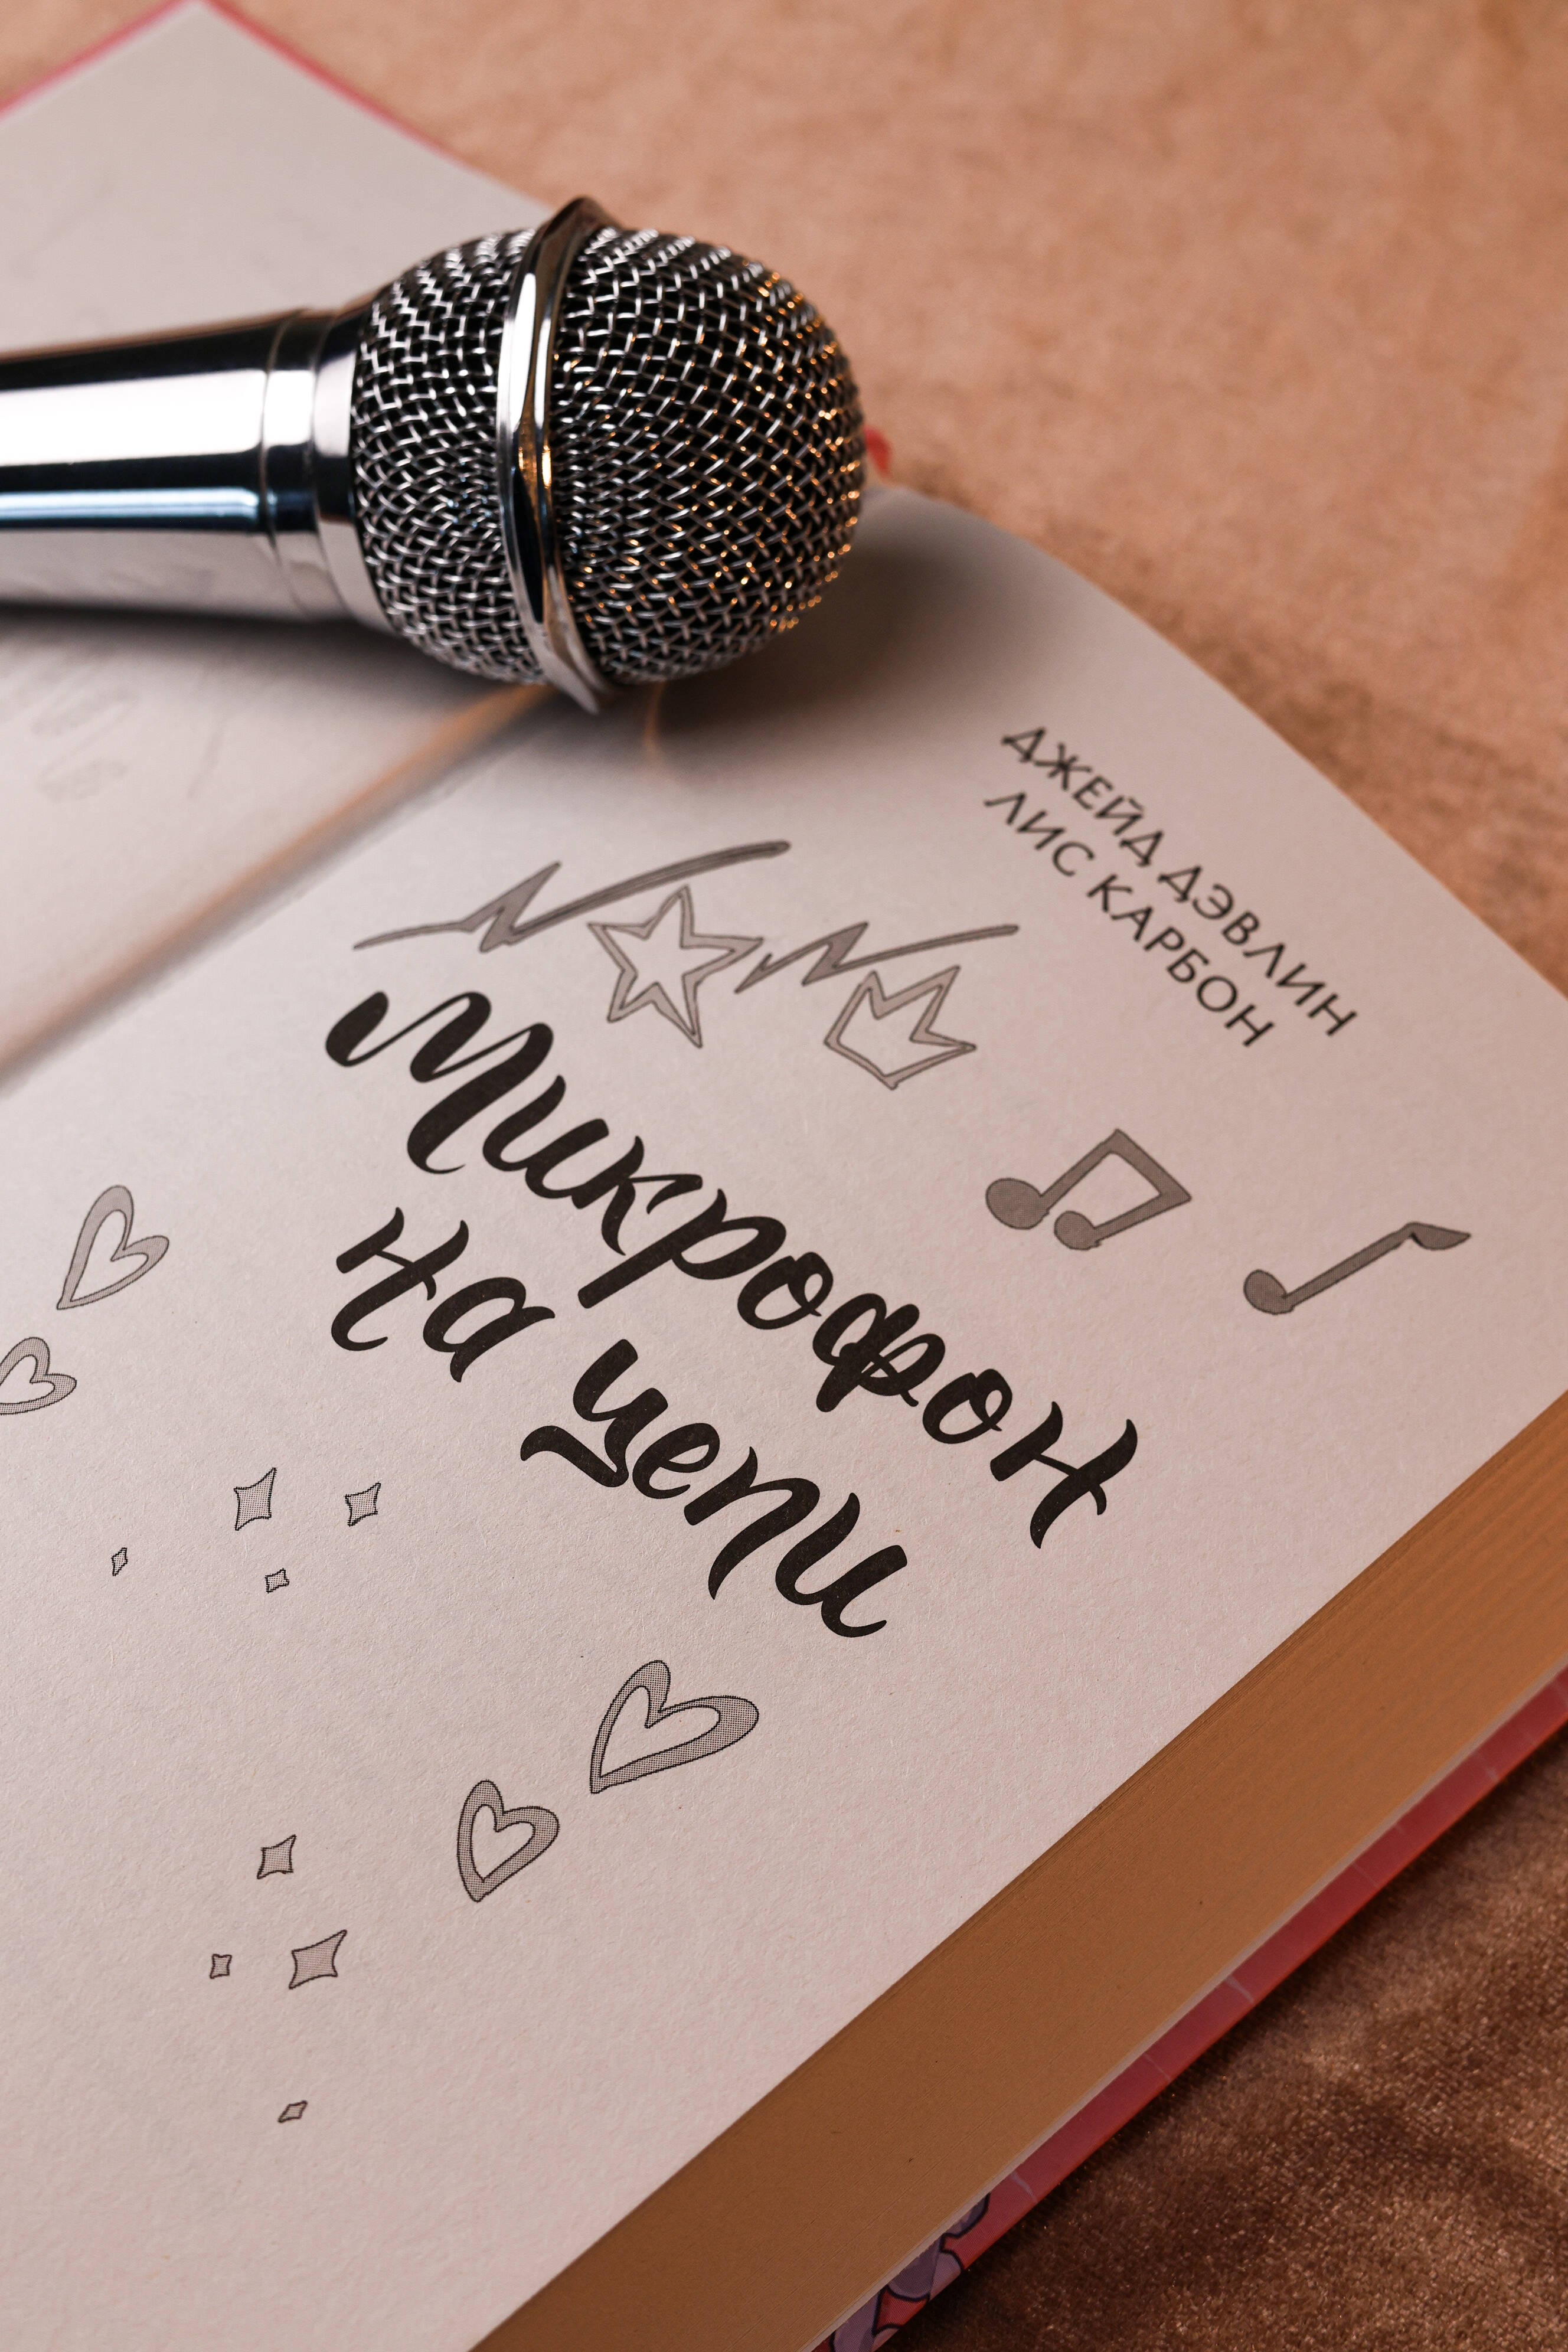 ДЖЕЙД ДЭВЛИН
ЛИС КАРБОН
Микрофон
на цепи